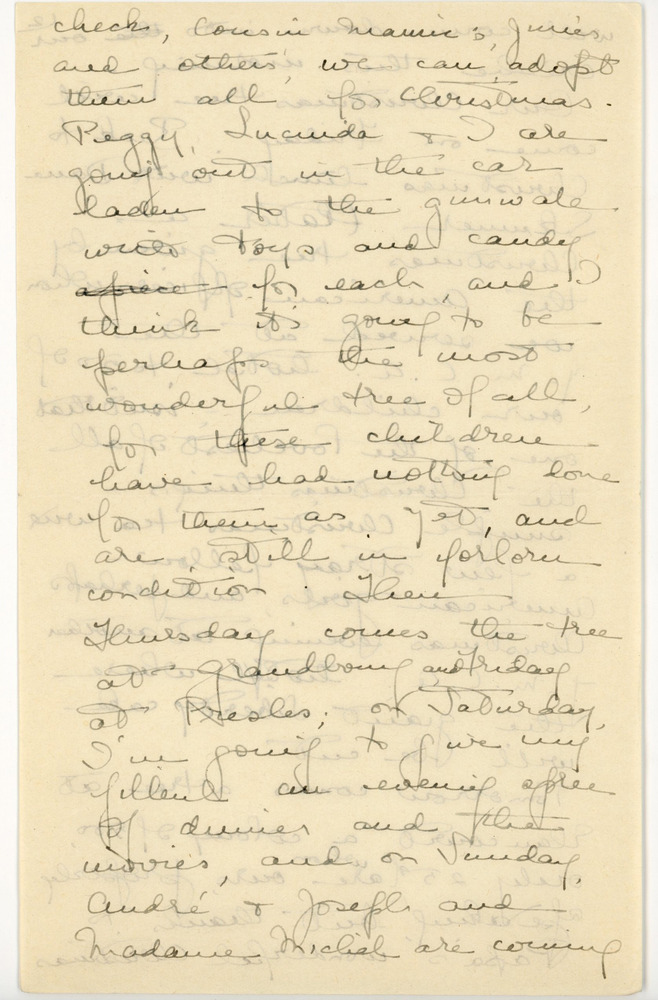 check, Cousin Mamie's, Junies
and others, we can adopt
them all for Christmas.
Peggy, Lucinda & I are
going out in the car
laden to the gunwale
with toys and candy
apiece for each, and I
think it's going to be
perhaps the most
wonderful tree of all,
for these children
have had nothing done
for them as yet, and
are still in forlorn
condition. Then
Thursday comes the tree
at Grandbony and Friday
at Presles; on Saturday,
I'm going to give my
filleul an evening spree
of dinner and the
movies, and on Sunday,
André & Joseph and
Madame Michel are coming